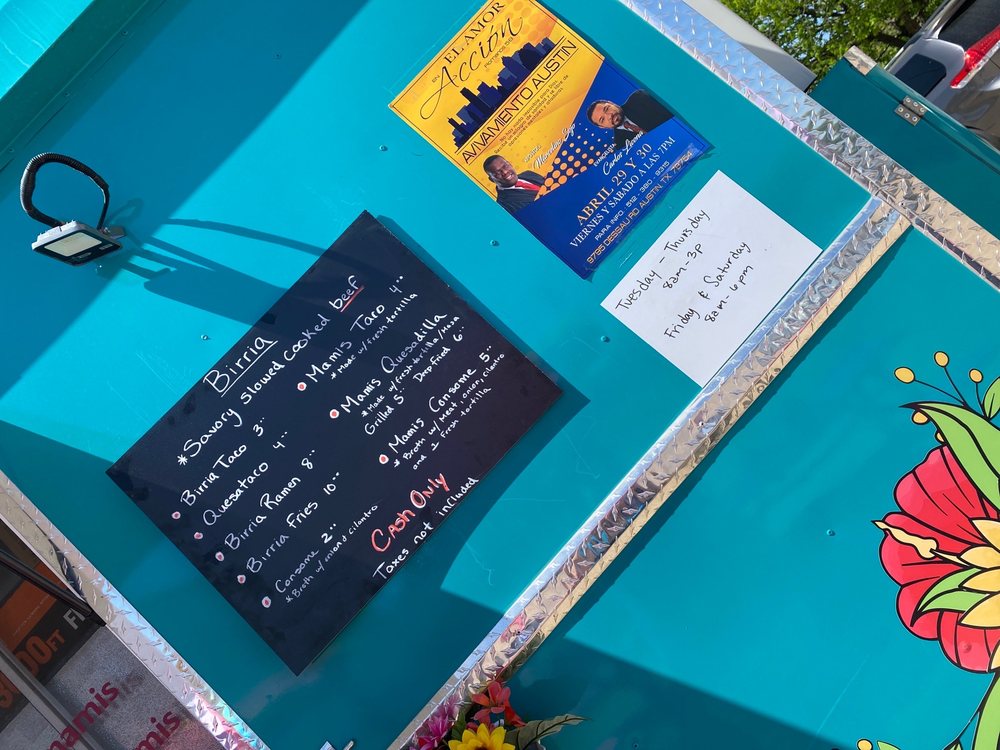 EL AMOR
EN Acción
AVIVAMIENTO AUSTIN
ABRIL 29 Y 30
VIERNES Y SÁBADO A LAS 7PM
PARA INFO: 512 - 380 - 9315
9795 DESSAU RD AUSTIN, TX 78754
Tuesday - Thursday
8am - 3p
Friday & Saturday
8am - 6pm
Birria
*Savory slowed cooked beef
Birria Taco 3
Quesataco 4
Birria Ramen 8
Birria Fries 10
Consome 2
* Broth w/ onion & cilantro
Mamis Taco 4
* Made w/ fresh tortilla
Mamis Quesadilla
* Made w/ fresh tortilla/Masa
Grilled 5 Deep Fried 6
Mamis Consome 5
* Broth w/ Meat, onion, cilantro
and 1 fresh tortilla
Cash Only
Taxes not included
00FT
mamis
mis